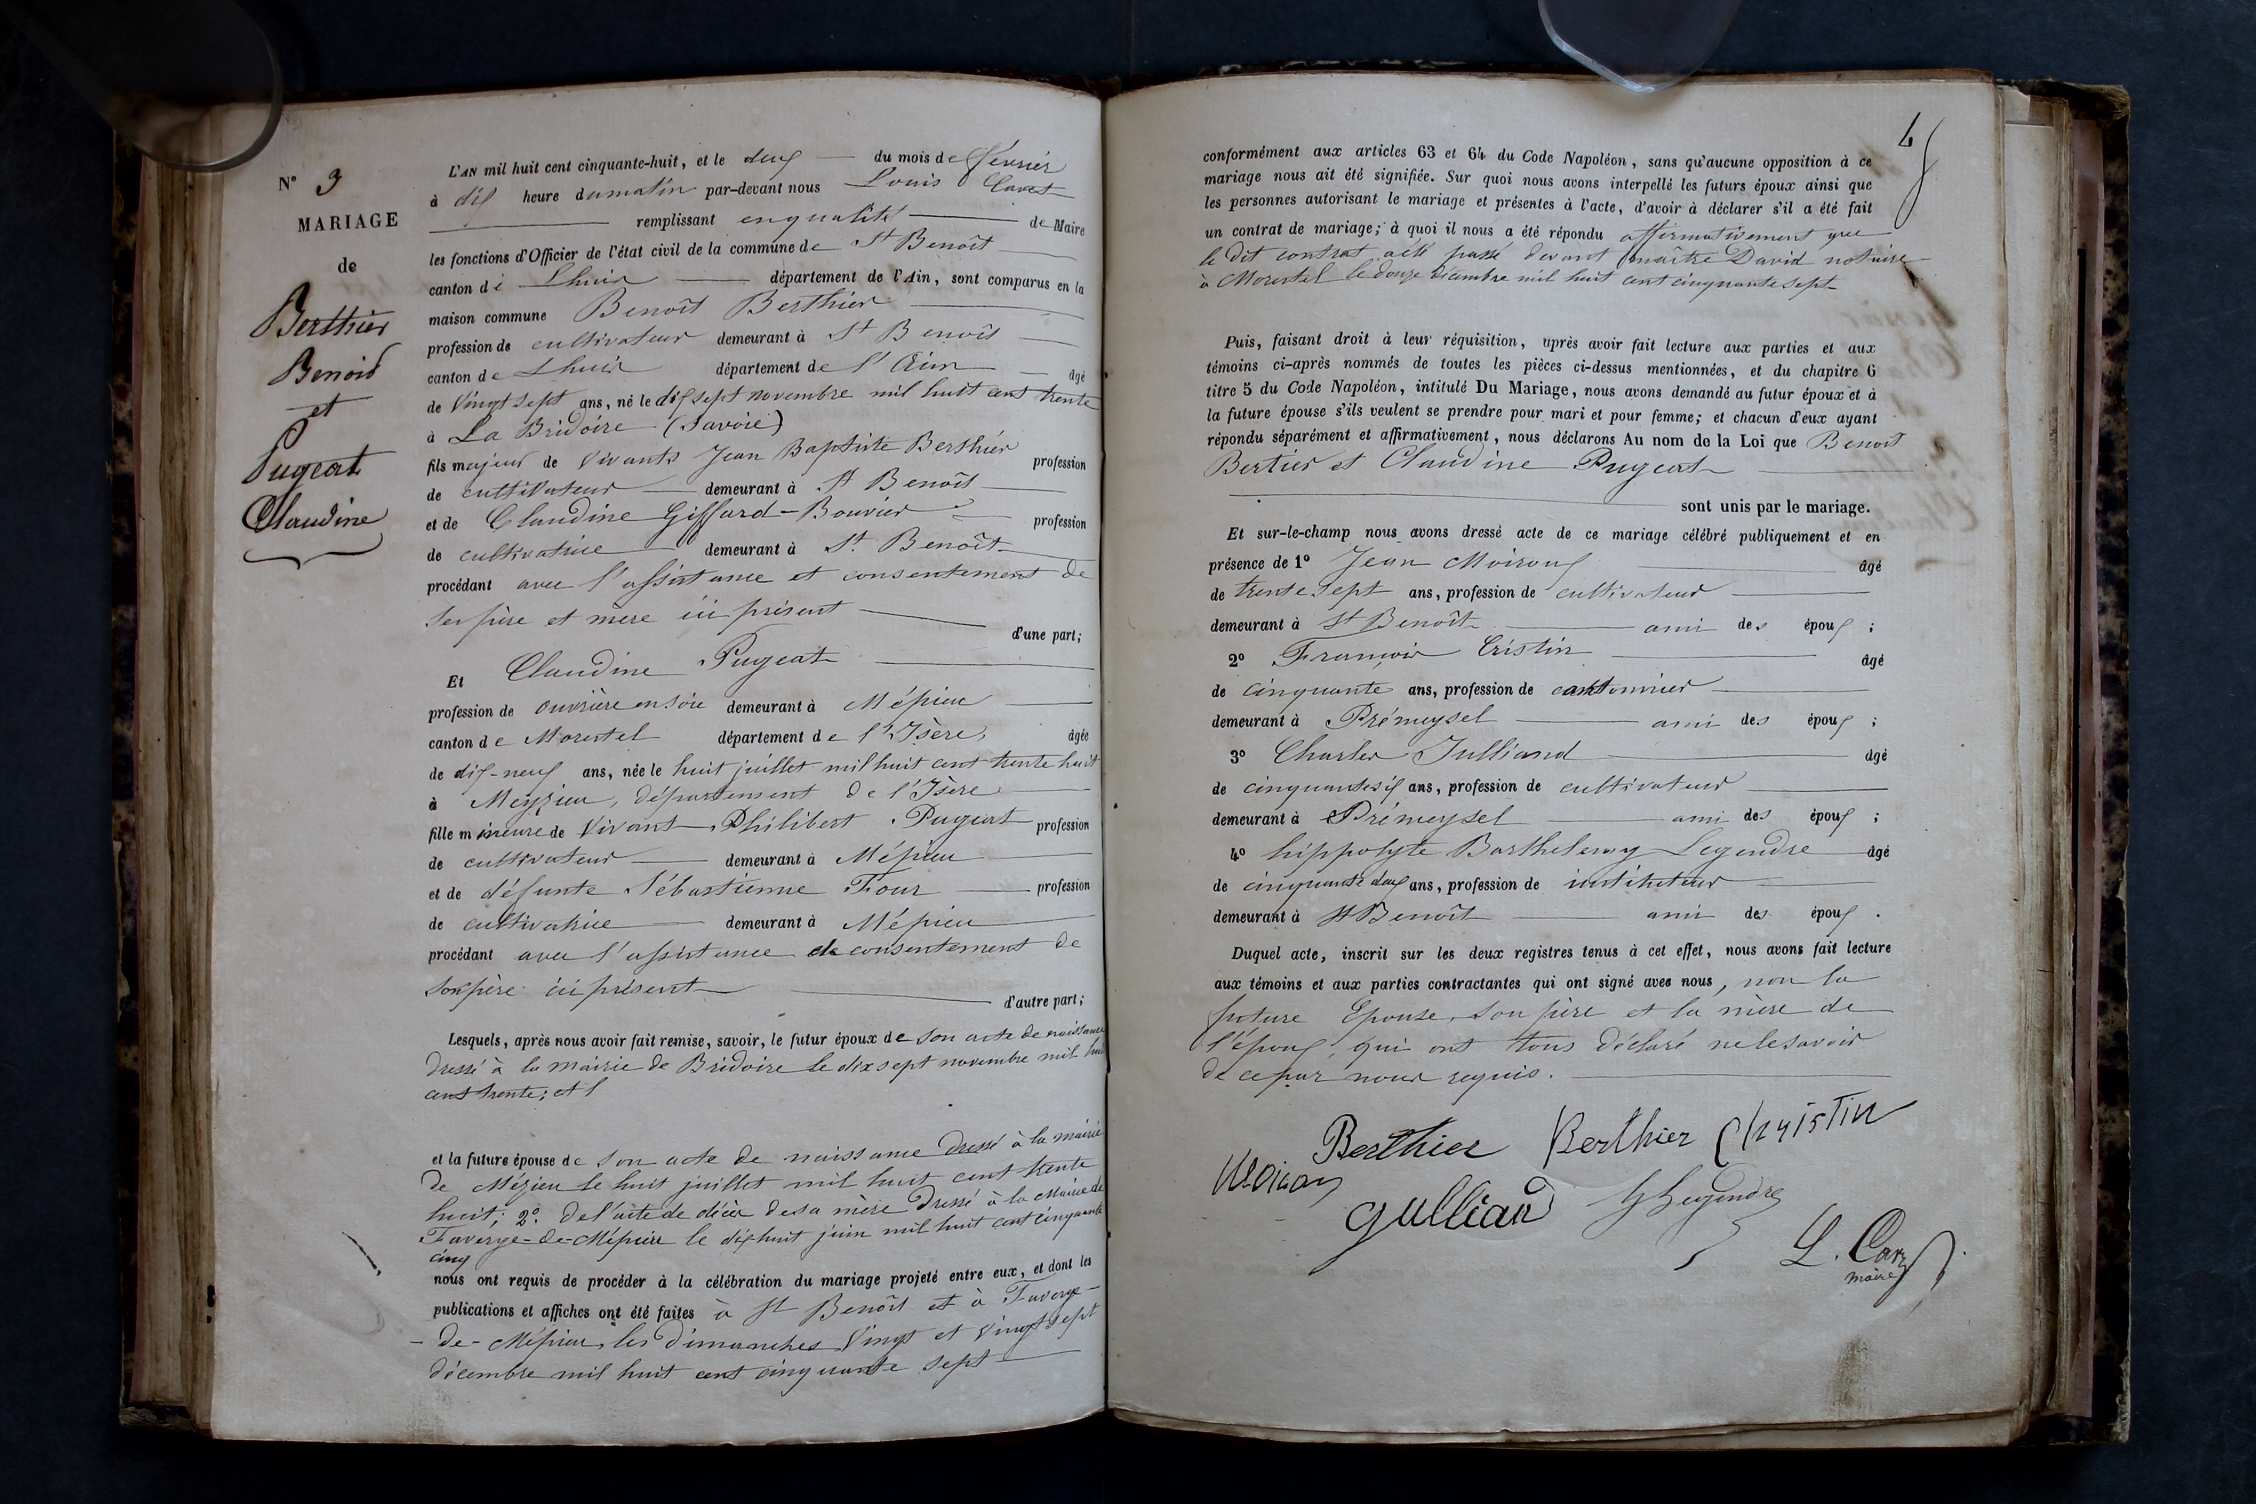 N° 3
MARIAGE
de
Berthier
Benoid
et
Pugeat
Claudine
L'AN mil huit cent cinquante-huit, et le deux du mois de février
à dix heure du matin par-devant nous Louis
remplissant en qualité de Maire
les fonctions d'Officier de l'état civil de la commune de St Benoît
canton de Lhuis département de l'Ain, sont comparus en la
maison commune Benoît Berthier
profession de cultivateur demeurant à St Benoît
canton de Lhuis département de l'Ain âgé
de vingt sept ans, né le dix sept novembre mil huit cent trente
à La Bridoire (Savoie)
fils majeur de vivants Jean Baptiste Berthier profession
de cultivateur demeurant à St Benoît
et de Claudine Giffard-Bouvier profession
de cultivatrice demeurant à St Benoît
procédant avec l'assistance et consentement de
ses père et mère ici présent
d'une part;
Et Claudine Pugeat
profession de ouvrière en soie demeurant à Mépieu
canton de Morestel département de l'Isère âgée
de dix-neuf ans, née le huit juillet mil huit cent trente huit
à Meyzieu, département de l'Isère
fille mineure de vivant Philibert Pugeat profession
de cultivateur demeurant à Mépieu
et de défunte Sébastienne Four profession
de cultivatrice demeurant à Mépieu
procédant avec l'assistance de consentement de
son père ici présent
d'autre part;
Lesquels, après nous avoir fait remise, savoir, le futur époux de son acte de naissance
dressé à la mairie de Bridoire le dix sept novembre mil huit
cent trente; et l
et la future épouse de son acte de naissance dressé à la mairie
de Mézieu le huit juillet mil huit cent trente
huit; 2° de l'acte de décès de sa mère dressé à la Mairie de
Faverge-de-Mépieu le dix huit juin mil huit cent cinquante
cinq
nous ont requis de procéder à la célébration du mariage projeté entre eux, et dont les
publications et affiches ont été faites à St Benoît et à Faverge-
-de-Mépieu, les dimanches vingt et vingt sept
décembre mil huit cent cinquante sept
4
conformément aux articles 63 et 64 du Code Napoléon, sans qu'aucune opposition à ce
mariage nous ait été signifiée. Sur quoi nous avons interpellé les futurs époux ainsi que
les personnes autorisant le mariage et présentes à l'acte, d'avoir à déclarer s'il a été fait
un contrat de mariage; à quoi il nous a été répondu affirmativement que
le dit contrat a été passé devant maître David notaire
à Morestel le douze décembre mil huit cent cinquante sept
Puis, faisant droit à leur réquisition, après avoir fait lecture aux parties et aux
témoins ci-après nommés de toutes les pièces ci-dessus mentionnées, et du chapitre 6
titre 5 du Code Napoléon, intitulé Du Mariage, nous avons demandé au futur époux et à
la future épouse s'ils veulent se prendre pour mari et pour femme; et chacun d'eux ayant
répondu séparément et affirmativement, nous déclarons Au nom de la Loi que Benoit
Bertier et Claudine Pugeat
sont unis par le mariage.
Et sur-le-champ nous avons dressé acte de ce mariage célébré publiquement et en
présence de 1° Jean Moiroux âgé
de trente sept ans, profession de cultivateur
demeurant à St Benoît ami des époux ;
2° François Cristin âgé
de cinquante ans, profession de cantonnier
demeurant à Prémeysel ami des époux ;
3° Charles Julliand âgé
de cinquante six ans, profession de cultivateur
demeurant à Prémeysel ami des époux ;
4° hippolyte Barthelemy Legendre âgé
de cinquante deux ans, profession de instituteur
demeurant à St Benoît ami des époux .
Duquel acte, inscrit sur les deux registres tenus à cet effet, nous avons fait lecture
aux témoins et aux parties contractantes qui ont signé avec nous, non la
future Epouse, son père et la mère de
l'époux, qui ont tous déclaré ne le savoir
de ce par nous requis.
Berthier Berthier Christin
Moirou
Gulliand hLegendre
L. Carr
maire